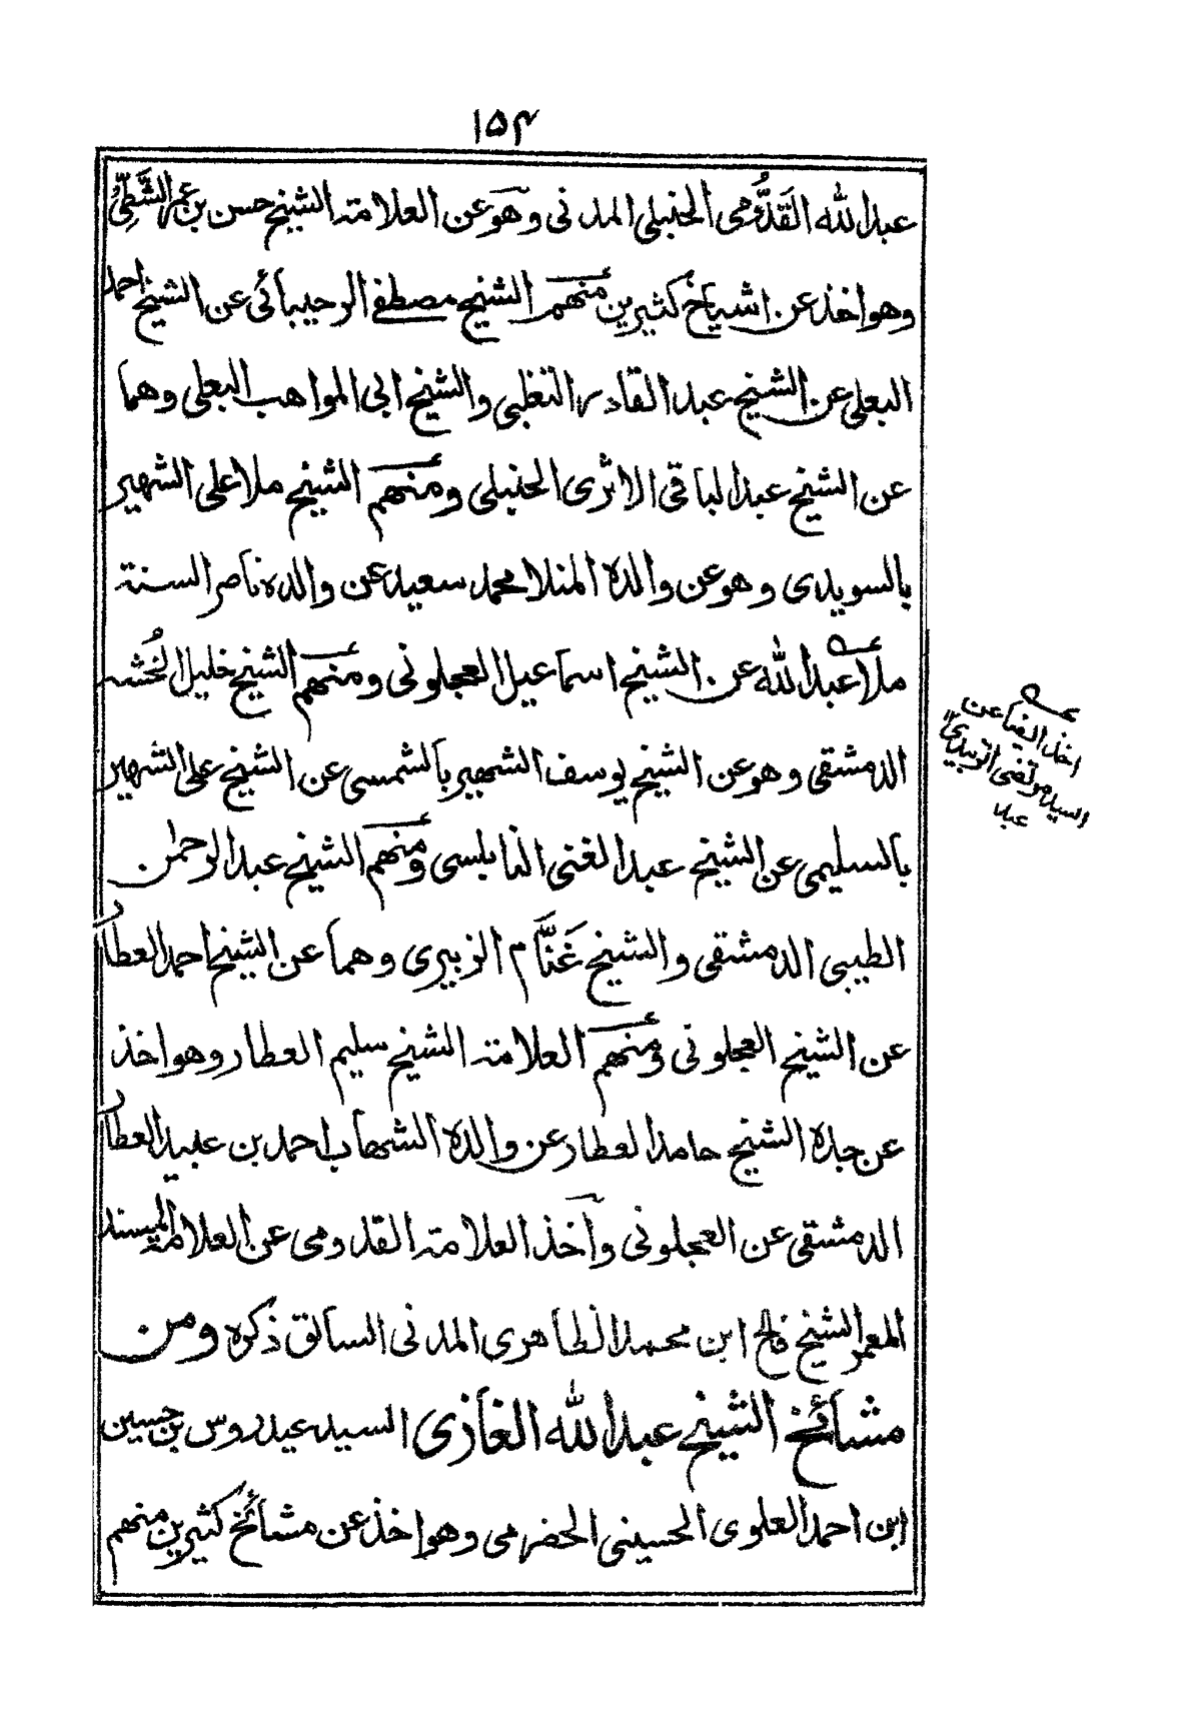 ١٥٤
عبد الله القَدُّومی الحنبلی المدنی وهو عن العلامة الشيخ حسن بن عمر الشَّطِّیُ
وهو اخذ عن اشياخ كثيرين منهم الشيخ مصطفے الرحيبائی عن الشيخ احمد
البعلی عن الشيخ عبد القادر التغلبی والشيخ ابی المواهب البعلی وهما
عن الشيخ عبد الباقی الاثری الحنبلی ومنهم الشيخ ملا علی الشهير
بالسويدی وهو عن والده المنلا محمد سعيد عن والده ناصر السنة
ملا عبد الله عن الشيخ اسماعيل العجلونی ومنهم الشيخ خليل الخُشه
الدمشقی وهو عن الشيخ يوسف الشهير بالشمسی عن الشيخ علی الشهير
بالسليمی عن الشيخ عبد الغنی النابلسی ومنهم الشيخ عبد الرحمٰن
الطيبی الدمشقی والشيخ غَنَّام الزبيری وهما عن الشيخ احمد العطار
عن الشيخ العجلونی ومنهم العلامة الشيخ سليم العطار وهو اخذ
عن جده الشيخ حامد العطار عن والده الشهاب احمد بن عبيد العطار
الدمشقی عن العجلونی وآخذ العلامة القدومی عن العلامة المسند
المعمر الشيخ فالح ابن محمد الظاهری المدنی السابق ذكره ومن
مشائخ الشيخ عبد الله الغازی السيد عيدروس بن حسين
ابن احمد العلوی الحسينی الحضرمی وهو اخذ عن مشائخ كثيرين منهم
عه
اخذ ايضا عن
السيد مرتضی الزبيدی ١١
عبد